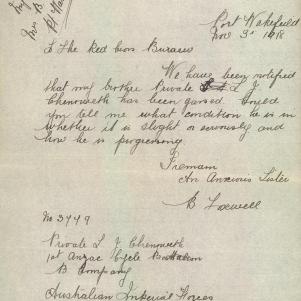 Port Wakefield
Nov 3rd 1918
To The Red Cross Bureau
We have been notified
that my brother Private L J
Chenoweth has been gassed. Could
you tell me what condition he is in
whether it is slight or seriously and
how he is progressing
I remain
An Anxious Sister
B Loxwell
No 3449
Private L J Chenoweth
1st Anzac Cycle Battalion
B Company
Australian Imperial Forces